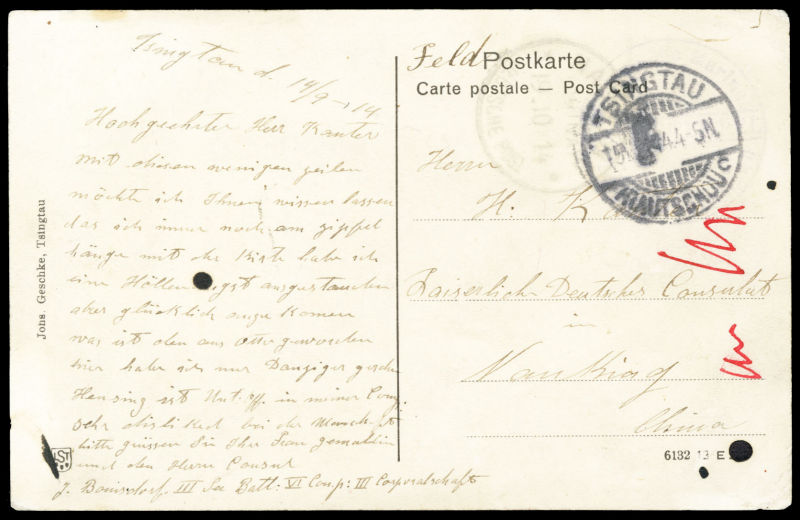 Tsingtau d. 14/9 14
Hochgeehrter Herr Kanter
mit diesen wenigen zeilen
möchte ich Ihnen wissen lassen
das ich immer noch am zippel
hänge mit der Kiste habe ich
eine Höllen gst ausgestanden
aber glücklich ange komen
was ist den aus Otto geworden
hir habe ich nur Danziger
Hensing ist Unt. off. in meiner Comp.
sehr dislicked bei der
bitte grüssen Sie Ihre Frau gemahlin
und den Herrn Consul
J. Boinsdorf. III See Batl: VI Comp: III Corporalschaft
Johs. Geschke, Tsingtau
LST
Feld Postkarte
Carte postale — Post Card
TSINGTAU
44-5N.
KIAUTSCHOU
c
Herrn
H. Ka
Kaiserlich Deutsches Consulat
in
Nanking
China
6132 13 E